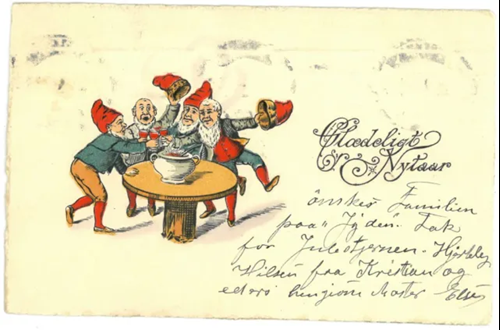 Glædeligt
Nytaar
ønskes Familien
paa "Jyden". Tak
for Julestjernen - Hjertelig
Hilsen fra Kristian og
eders hengivne Moster